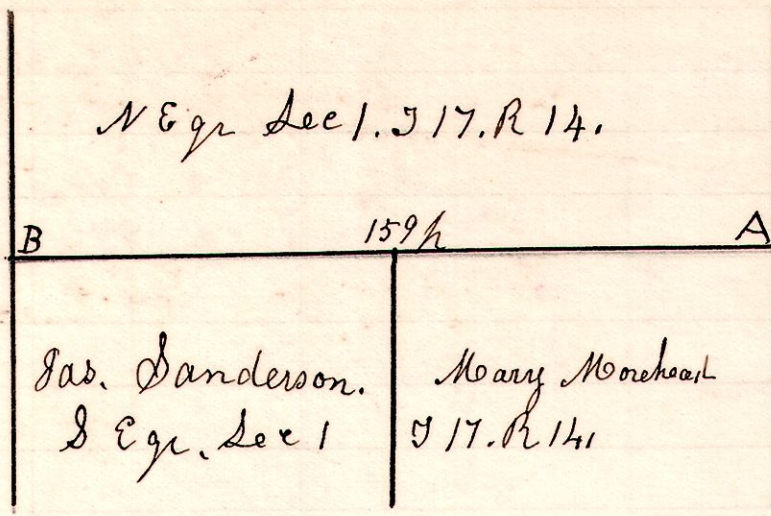 N E qr Sec 1. T 17. R 14.
B 159 p A
Jas. Sanderson.
S E qr. Sec 1
Mary Morehead
T 17. R 14.